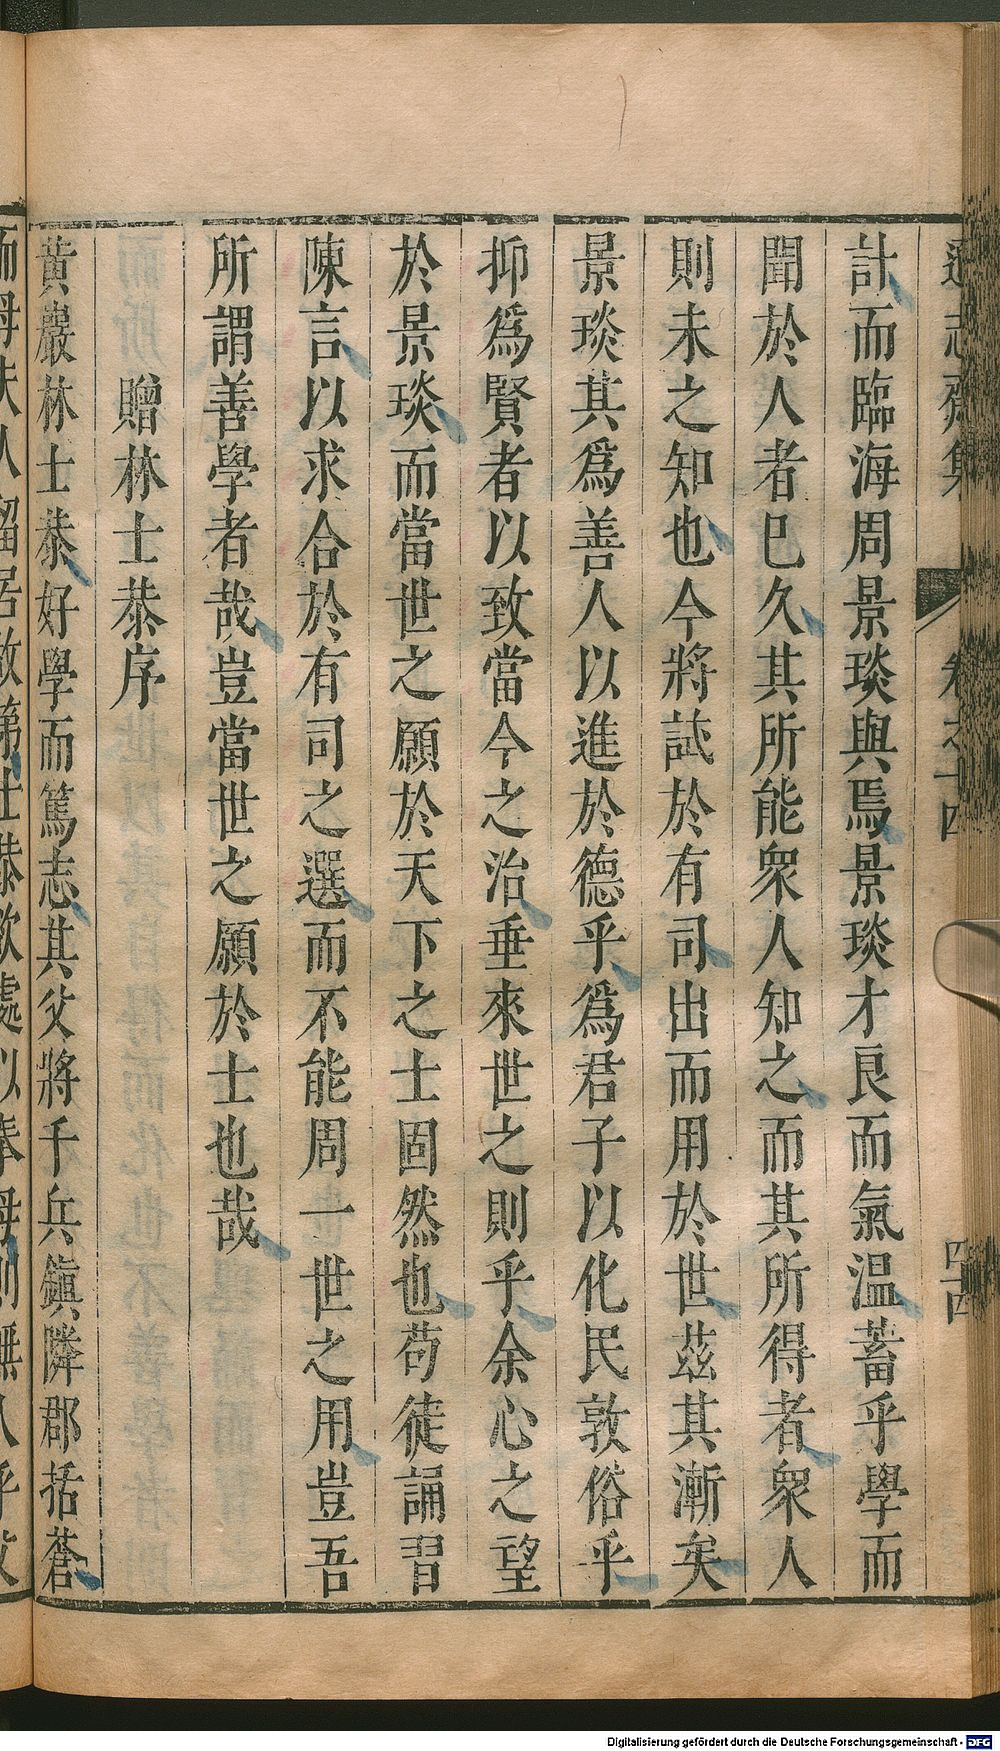 遜志齋集　卷之十四　四十四
計而臨海周景琰與焉景琰才良而氣温蓄乎學而
聞於人者巳久其所能衆人知之而其所得者衆人
則未之知也今將試於有司出而用於世茲其漸矣
景琰其爲善人以進於德乎爲君子以化民敦俗乎
抑爲賢者以致當今之治垂來世之則乎余心之望
於景琰而當世之願於天下之士固然也苟徒誦習
陳言以求合於有司之選而不能周一世之用豈吾
所謂善學者哉豈當世之願於士也哉
贈林士恭序
黃巖林士恭好學而篤志其父將千兵鎭隣郡括蒼
而母夫人留居故第士恭欲處以奉母則無人乎父
Digitalisierung gefördert durch die Deutsche Forschungsgemeinschaft - DFG